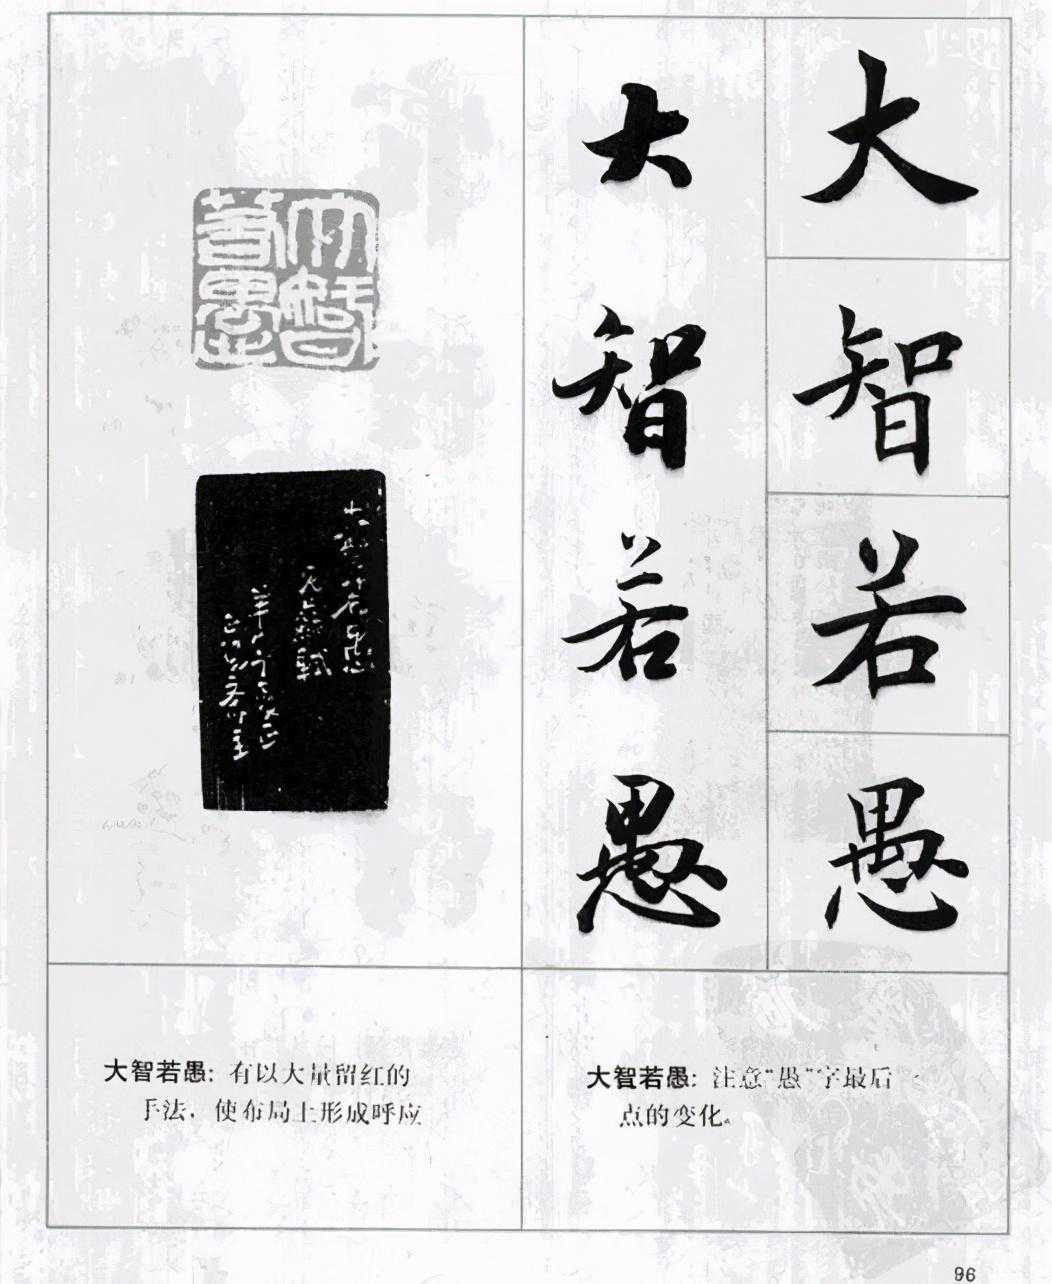 大智若愚
大智若愚
大智若愚
大智若愚
大智若愚：有以大量留红的
手法，使布局上形成呼应
大智若愚：注意“愚”字最后一
点的变化。
96